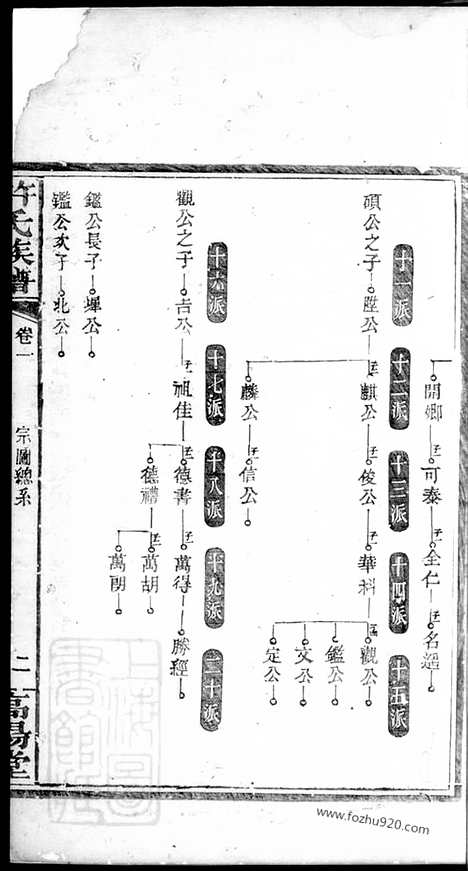 開鄉 可泰 全仁 名遥
十一派 十二派 十三派 十四派 十五派
碩公之子 陞公 子二 麒公 子一 俊公 子一 華料 子四 觀公
鑑公
文公
定公
麟公 子一 信公
十六派 十七派 十八派 十九派 二十派
觀公之子 吉公 子一 祖佳 子二 德書 子一 萬得 勝經
德禮 子二 萬胡
萬朗
鑑公長子 墀公
鑑公次子 北公
許氏族譜 卷一 宗圖總系 二 高陽堂
www.fozhu920.com